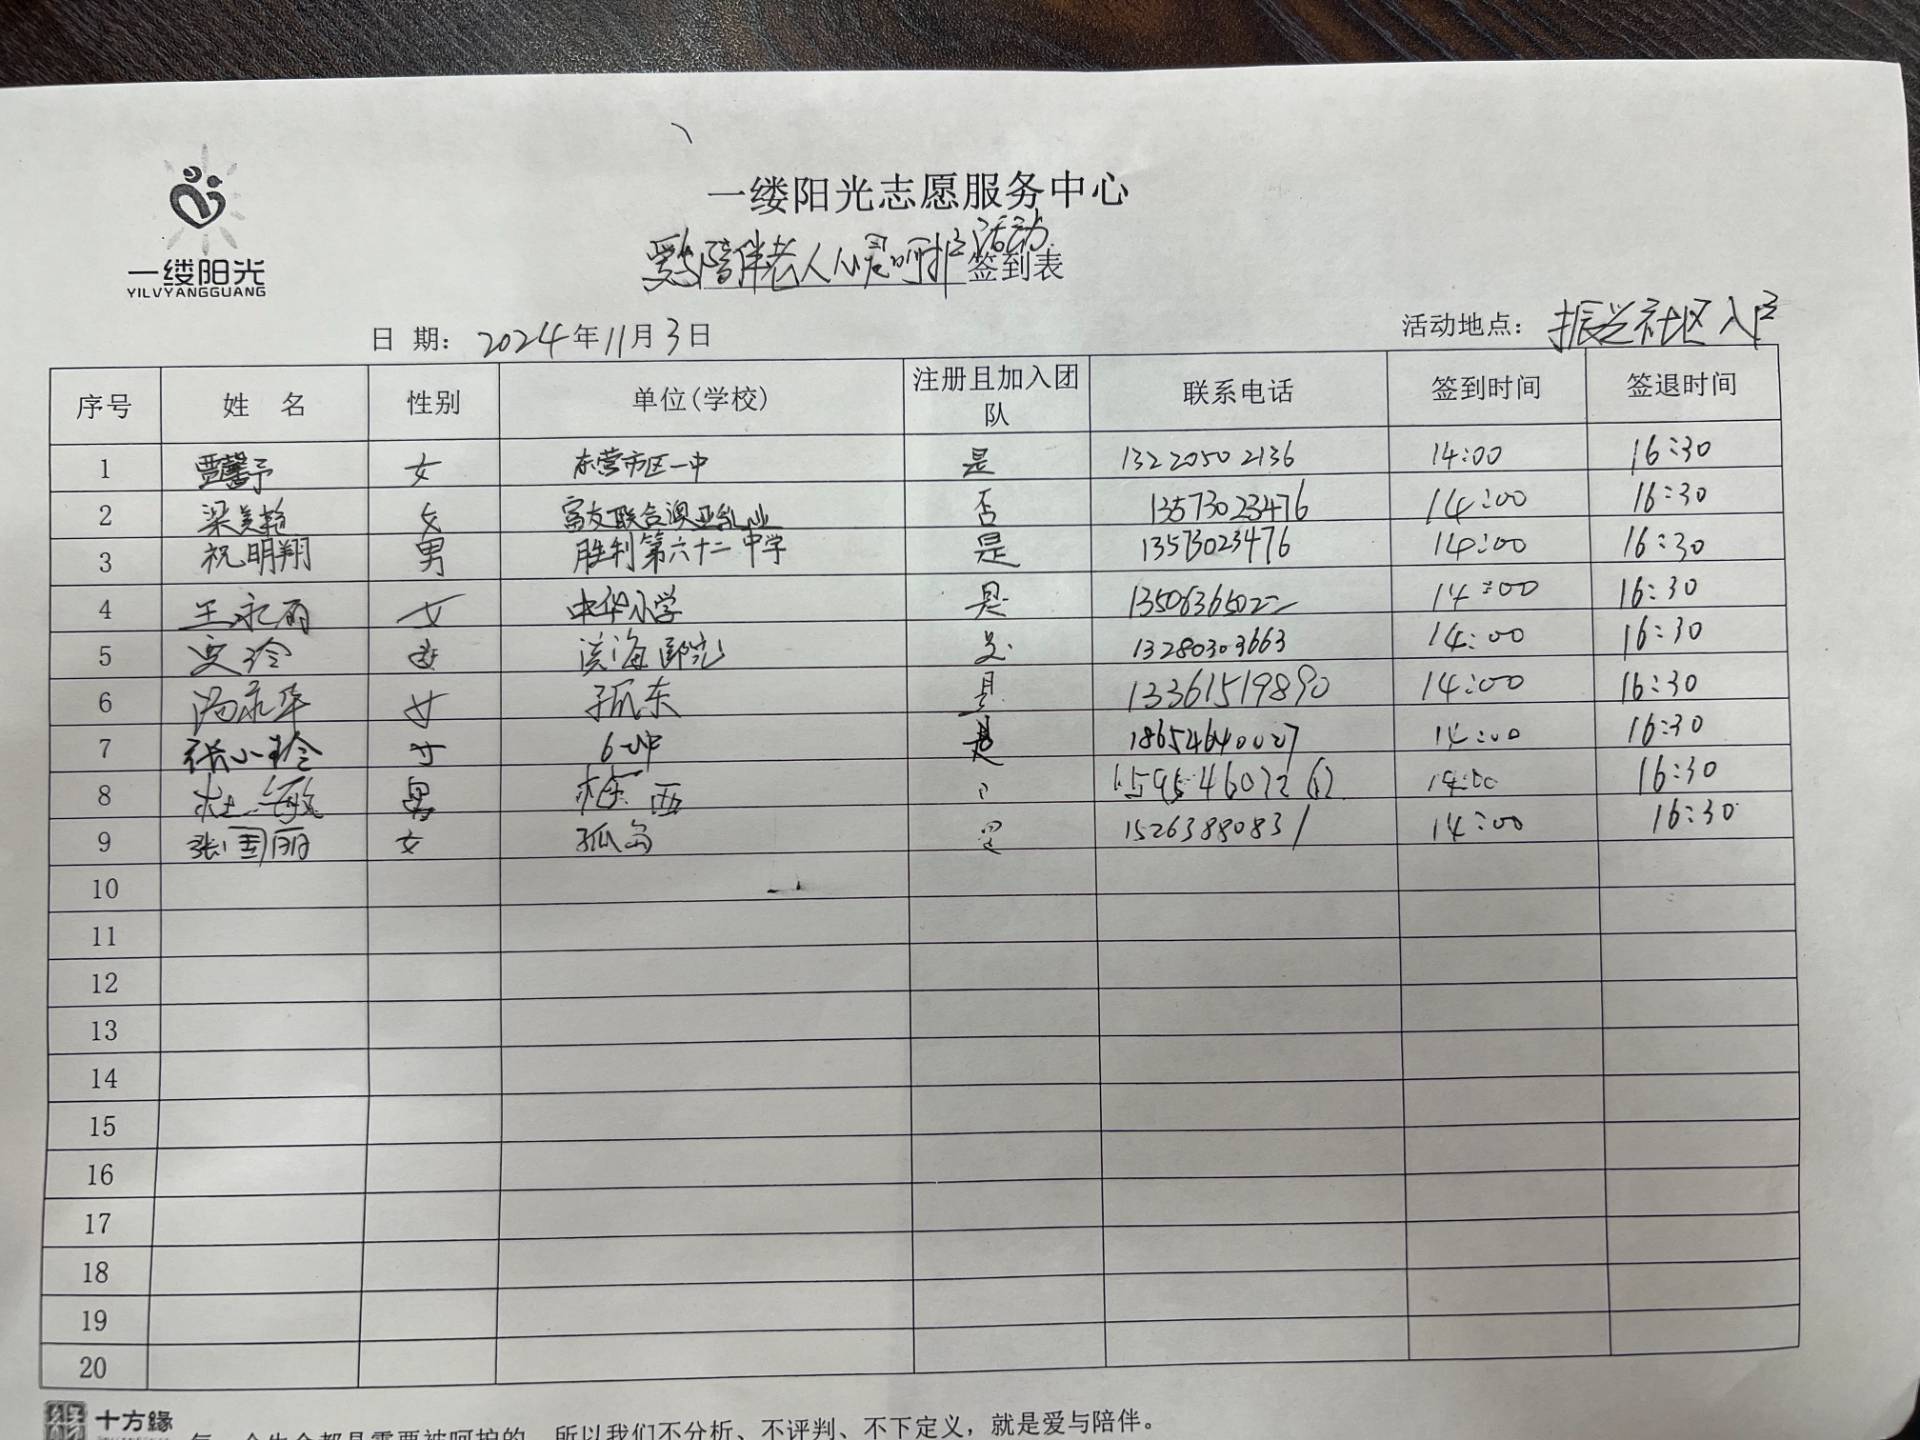 一缕阳光志愿服务中心
陪伴老人心灵呵护活动签到表
一缕阳光
YILVYANGGUANG
日 期： 2024年11月3日
活动地点：振兴社区入户
序号 姓 名 性别 单位(学校) 注册且加入团队 联系电话 签到时间 签退时间
1 贾馨予 女 东营市区一中 是 13220502136 14:00 16:30
2 梁美艳 女 富友联合澳亚乳业 否 13573023476 14:00 16:30
3 祝明翔 男 胜利第六十二中学 是 13573023476 14:00 16:30
4 王永丽 女 中华小学 是 13506365022 14:00 16:30
5 玲 女 滨海医院 是 13280303663 14:00 16:30
6 冯永华 女 孤东 是 13361519890 14:00 16:30
7 张小玲 女 6中 是 18654640027 14:00 16:30
8 杜敏 男 西 14:00 16:30
9 张国丽 女 孤岛 是 15263880831 14:00 16:30
10
11
12
13
14
15
16
17
18
19
20
十方缘
每一个生命都是需要被呵护的，所以我们不分析、不评判、不下定义，就是爱与陪伴。